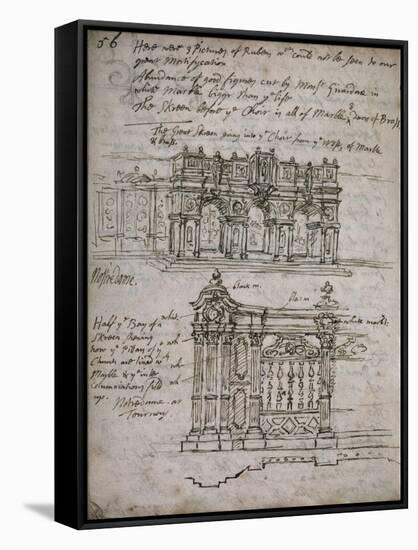 56
Here were 3 Pictures of Ruben wch could not be seen to our
great Mortification
Abundance of good figures cut by Monsr Guardae in
white Marble bigger than ye life
The Skreen before ye Choir is all of Marble & doors of Brass
The Great Skreen going into ye Choir from ye West, of Marble
& brass.
Notredame.
Black m.
Black m.
white marbl.
Half ye Bay of a
Skreen shewing
how ye Pillars of
Church are lined wth
Marble & ye inter
Columniations filld
up. Notredame at
Tournay
white
wh
wh
wh